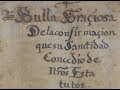 Bulla Graciosa
De la confirmacion
que su Santidad
Concedio de
Nros Esta
tutos